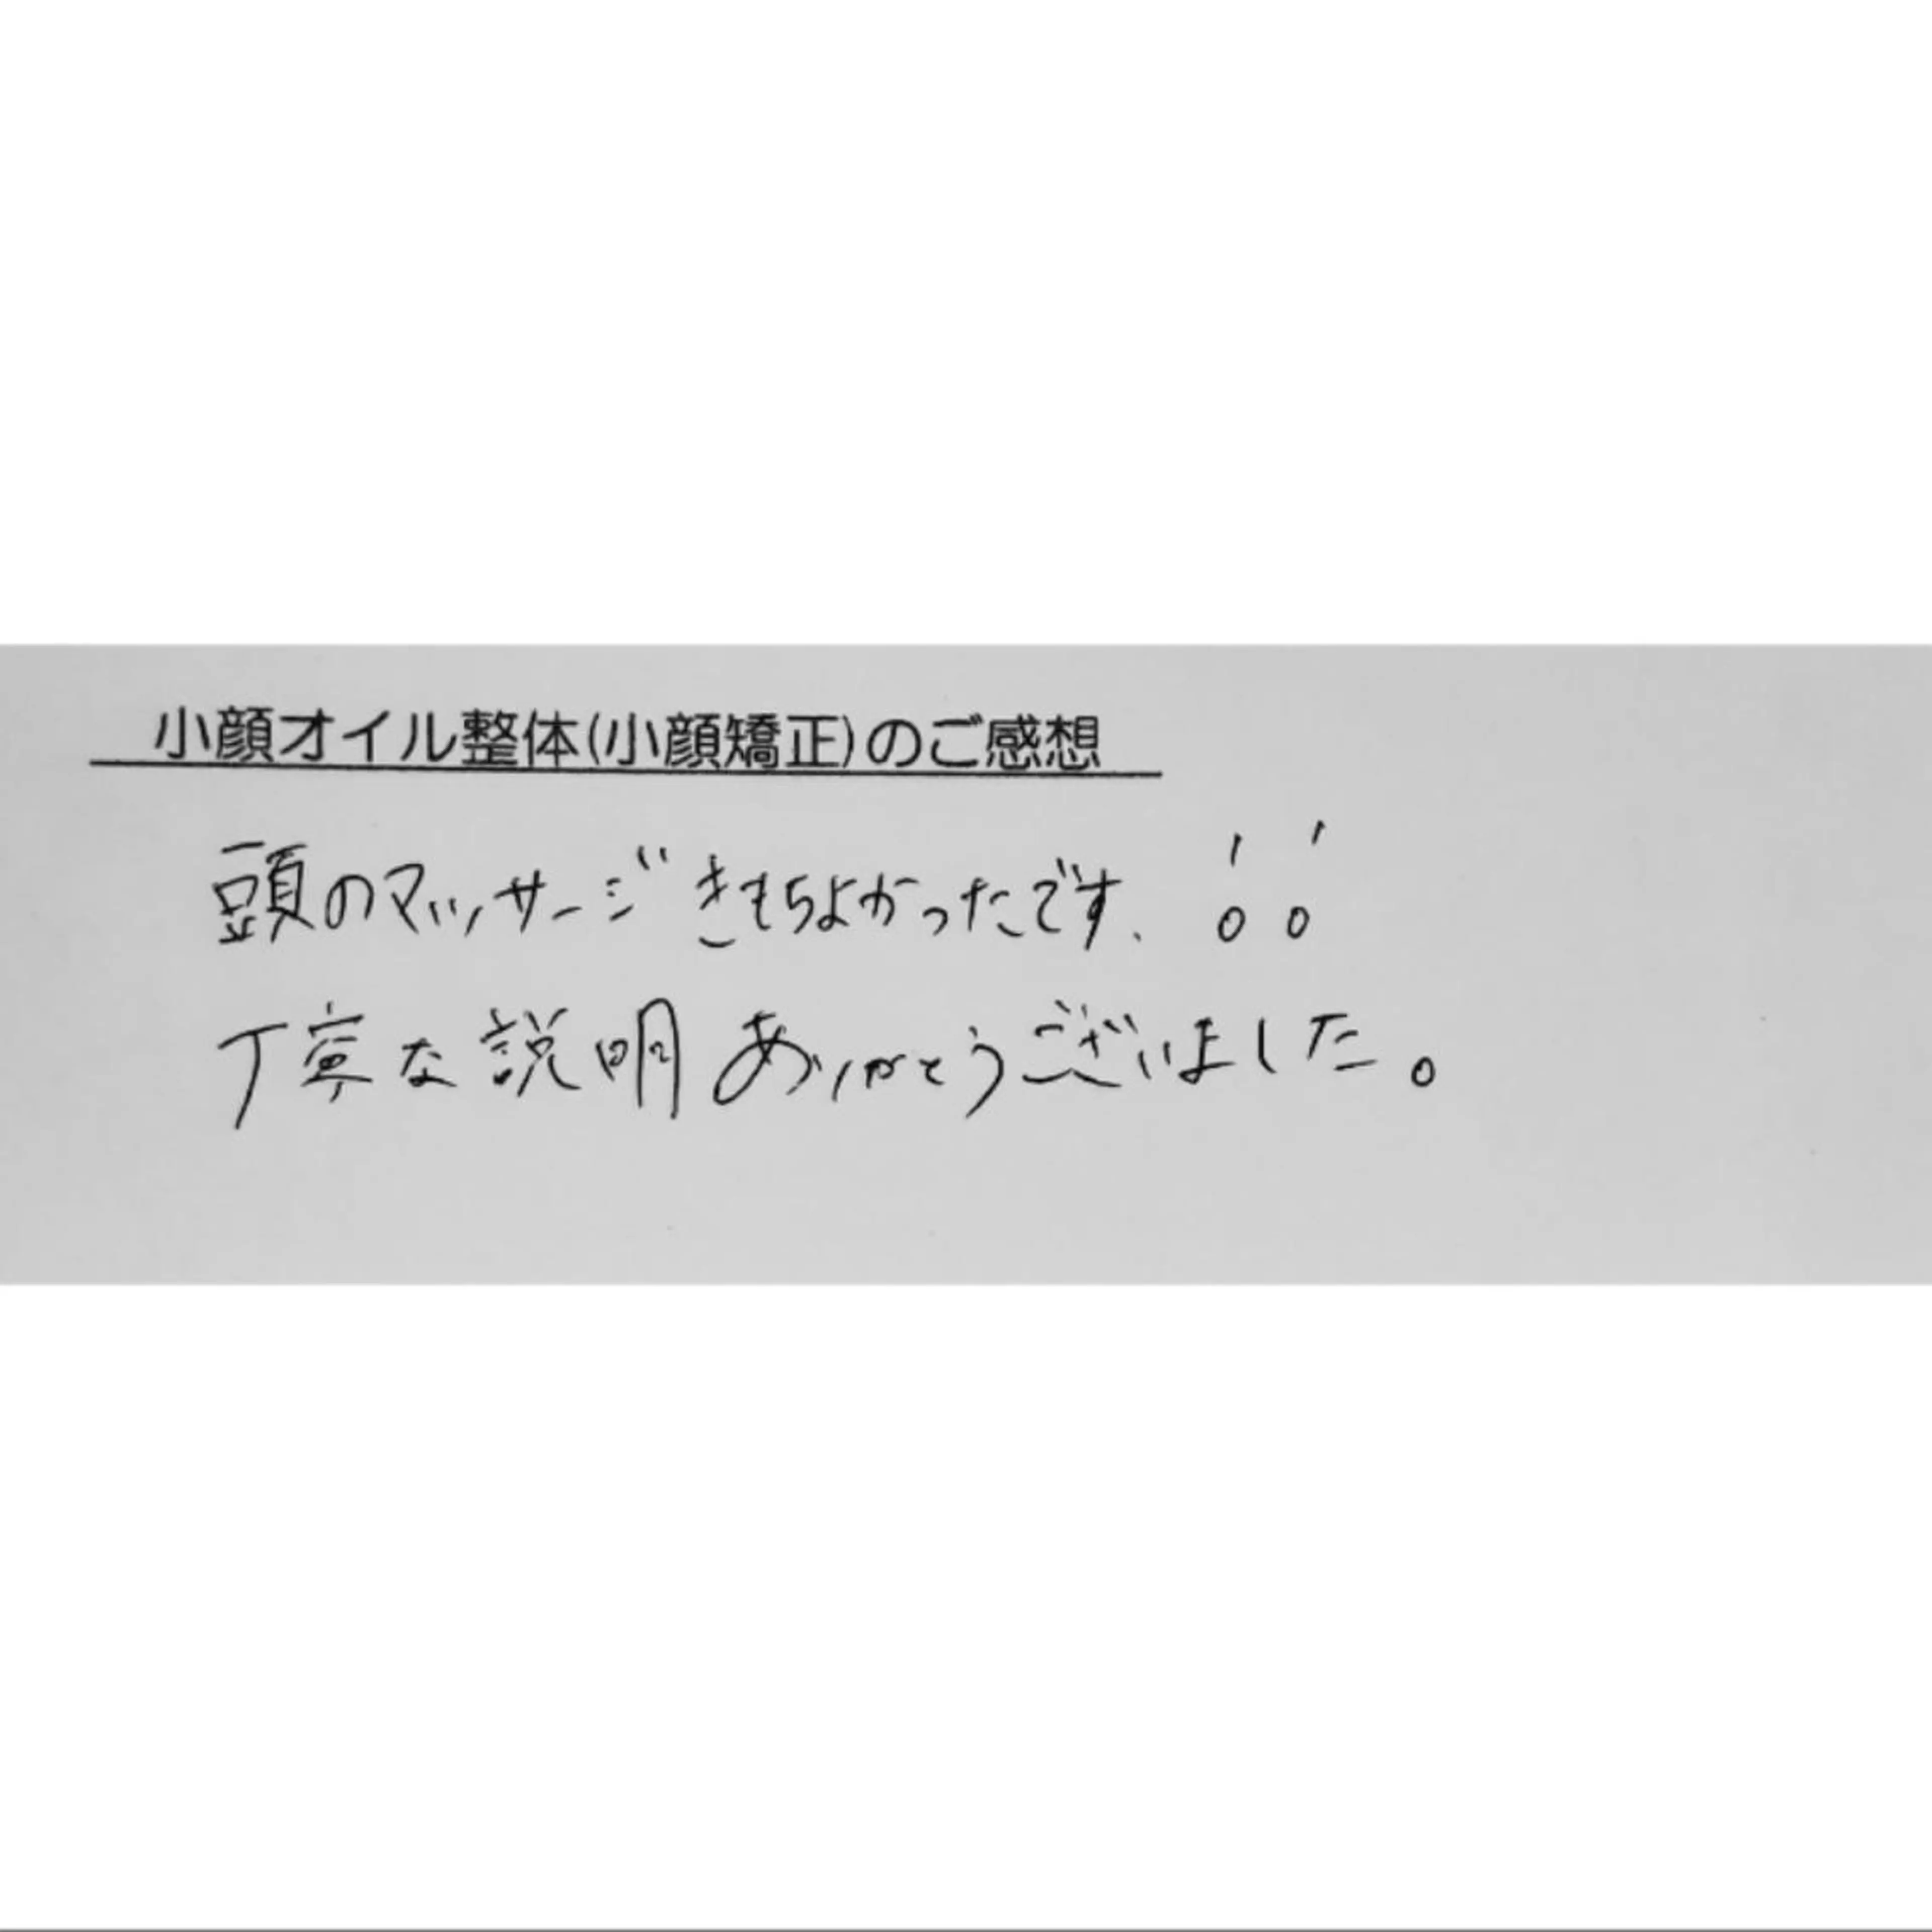 小顔オイル整体(小顔矯正)のご感想
頭のマッサージきもちよかったです、!!
丁寧な説明ありがとうございました。